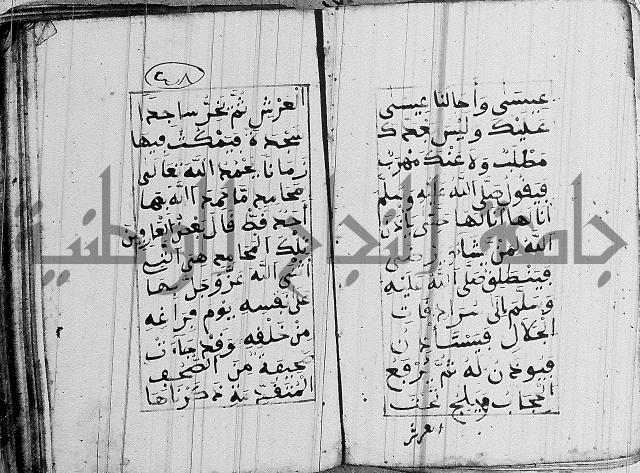 عيسى وأحالنا عيسى
عليك وليس بعدك
مطلب ولا عنك مهرب
فيقول صلى الله عليه وسلم
أنا لها أنا لها حتى يأذن
الله لمن يشاء ويرضى
فينطلق صلى الله عليه
وسلم إلى سرادقات
الجلال فيستأذن
فيوذن له ثم يرفع
الحجاب ويلج تحت
العرش
٢٠٨
العرش ثم يخر ساجدا
سجدة فيمكث فيها
زمانا يحمد الله تعالى
بمحامد ما حمد الله بها
أحد قط قال بعض العارفين
تلك المحامد هي التي
أثنى الله عز وجل بها
على نفسه يوم فراغه
من خلقه وقد جاءت
صحيفة من الصحف
المتقدمة ذكرناها
جامعة النجاح الوطنية